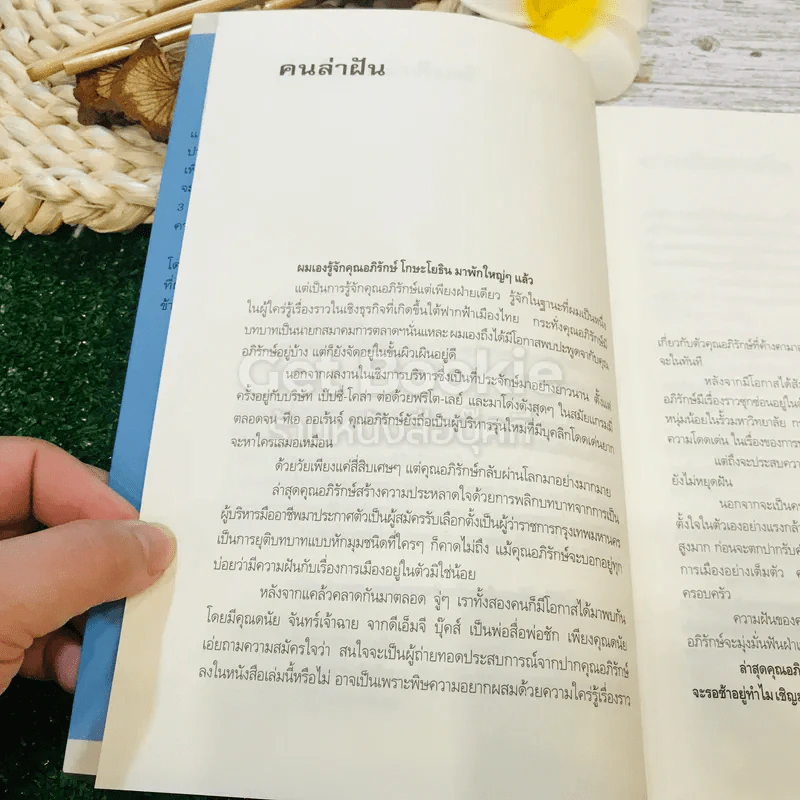 คนล่าฝัน
ผมเองรู้จักคุณอภิรักษ์ โกษะโยธิน มาพักใหญ่ๆ แล้ว
แต่เป็นการรู้จักคุณอภิรักษ์แต่เพียงฝ่ายเดียว รู้จักในฐานะที่ผมเป็นหนึ่ง
ในผู้ใคร่รู้เรื่องราวในเชิงธุรกิจที่เกิดขึ้นใต้ฟากฟ้าเมืองไทย กระทั่งคุณอภิรักษ์มี
บทบาทเป็นนายกสมาคมการตลาดฯนั่นแหละ ผมเองถึงได้มีโอกาสพบปะพูดจากับคุณ
อภิรักษ์อยู่บ้าง แต่ก็ยังจัดอยู่ในขั้นผิวเผินอยู่ดี
นอกจากผลงานในเชิงการบริหารซึ่งเป็นที่ประจักษ์มาอย่างยาวนาน ตั้งแต่
ครั้งอยู่กับบริษัท เป๊ปซี่-โคล่า ต่อด้วยฟริโต-เลย์ และมาโด่งดังสุดๆ ในสมัยแกรมมี่
ตลอดจน ทีเอ ออเร้นจ์ คุณอภิรักษ์ยังถือเป็นผู้บริหารรุ่นใหม่ที่มีบุคลิกโดดเด่นยาก
จะหาใครเสมอเหมือน
ด้วยวัยเพียงแค่สี่สิบเศษๆ แต่คุณอภิรักษ์กลับผ่านโลกมาอย่างมากมาย
ล่าสุดคุณอภิรักษ์สร้างความประหลาดใจด้วยการพลิกบทบาทจากการเป็น
ผู้บริหารมืออาชีพมาประกาศตัวเป็นผู้สมัครรับเลือกตั้งเป็นผู้ว่าราชการกรุงเทพมหานคร
เป็นการยุติบทบาทแบบหักมุมชนิดที่ใครๆ ก็คาดไม่ถึง แม้คุณอภิรักษ์จะบอกอยู่ทุก
บ่อยว่ามีความฝันกับเรื่องการเมืองอยู่ในตัวมิใช่น้อย
หลังจากแคล้วคลาดกันมาตลอด จู่ๆ เราทั้งสองคนก็มีโอกาสได้มาพบกัน
โดยมีคุณดนัย จันทร์เจ้าฉาย จากดีเอ็มจี บุ๊คส์ เป็นพ่อสื่อพ่อชัก เพียงคุณดนัย
เอ่ยถามความสมัครใจว่า สนใจจะเป็นผู้ถ่ายทอดประสบการณ์จากปากคุณอภิรักษ์
ลงในหนังสือเล่มนี้หรือไม่ อาจเป็นเพราะพิษความอยากผสมด้วยความใคร่รู้เรื่องราว
เกี่ยวกับตัวคุณอภิรักษ์ที่ค้างคามา
จะในทันที
หลังจากมีโอกาสได้สั
อภิรักษ์มีเรื่องราวซุกซ่อนอยู่ในตั
หนุ่มน้อยในรั้วมหาวิทยาลัย
ความโดดเด่น ในเรื่องของการ
แต่ถึงจะประสบความ
ยังไม่หยุดฝัน
นอกจากจะเป็นคร
ตั้งใจในตัวเองอย่างแรงกล้า
สูงมาก ก่อนจะตกปากรับคำ
การเมืองอย่างเต็มตัว
ครอบครัว
ความฝันของค
อภิรักษ์จะมุ่งมั่นฟันฝ่า
ล่าสุดคุณอภิ
จะรอช้าอยู่ทำไม เชิญ
Get Bookie
ร้านหนังสือบุ๊คกี้